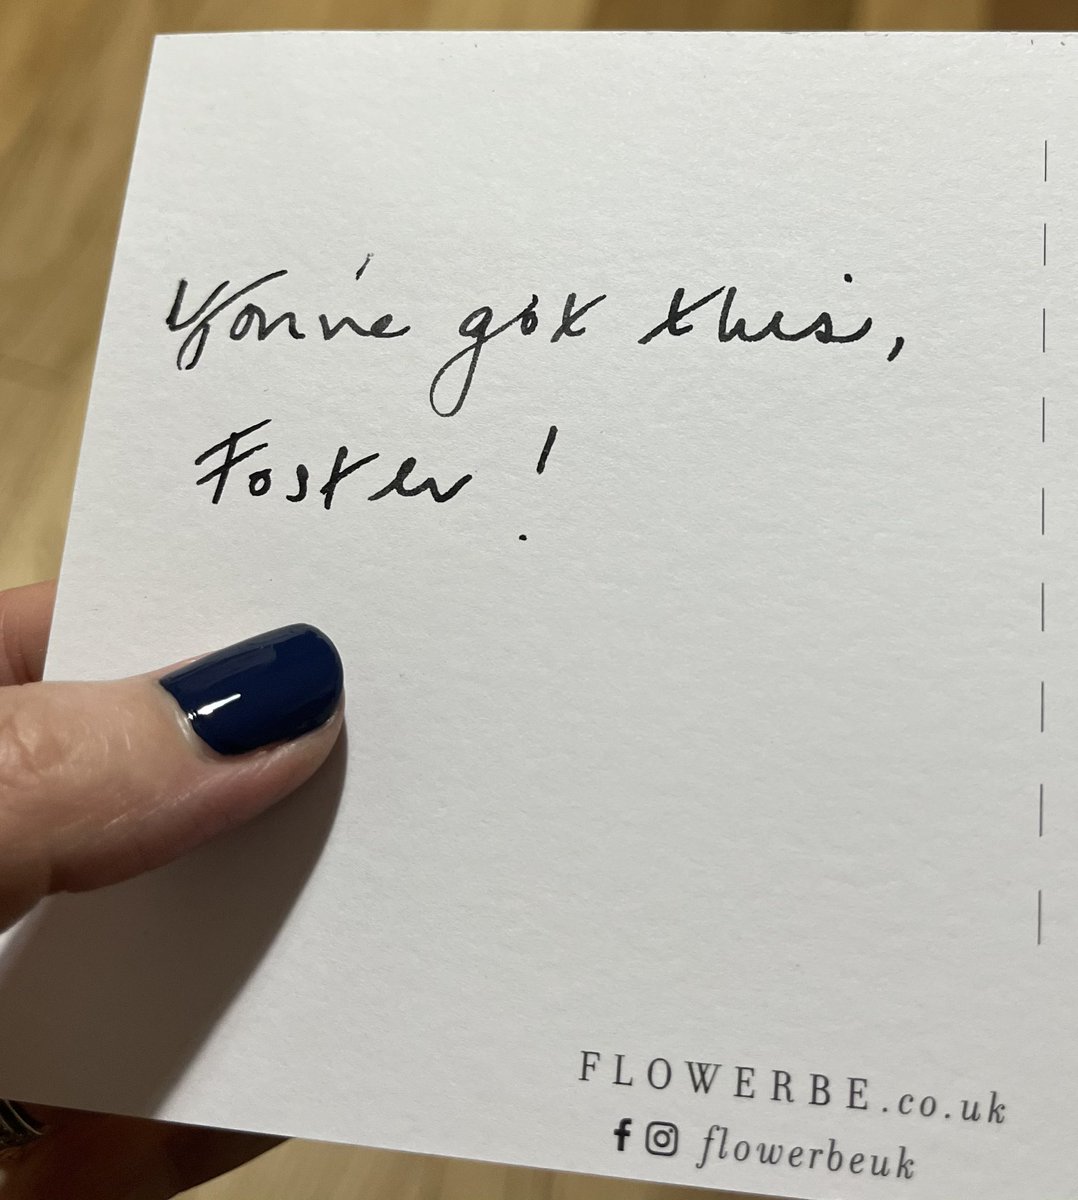 You've got this,
Foster!
FLOWERBE.co.uk
flowerbeuk